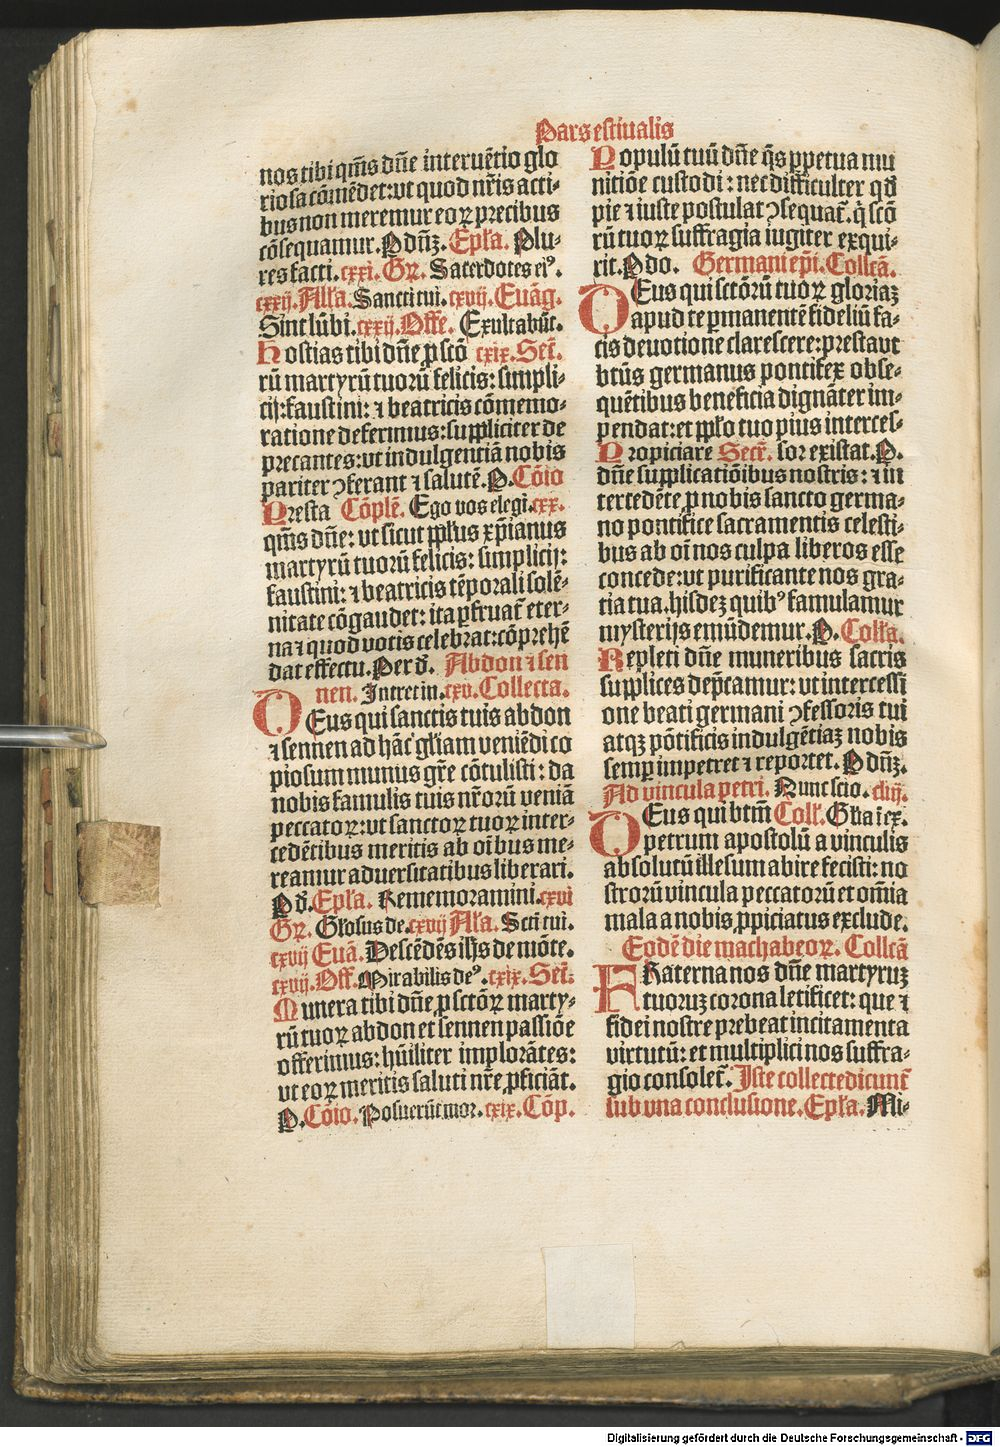 Pars estiualis
nos tibi qm̃s dñe interuẽtio glo
riosa cõmẽdet: vt quod nr̃is acti-
bus non meremur eoꝝ precibus
cõsequamur. P dñꝫ. Ep̃la. Plu-
res facti. cxxi. Gꝝ. Sacerdotes eiꝰ.
cxxij. All̃a. Sancti tui. cxvij. Euãg.
Sint lũbi. cxxij. Offe. Exultabũt.
Hostias tibi dñe ꝓ sctõ cxix. Secr̃.
rũ martyrũ tuorũ felicis: simpli-
cij: faustini: ⁊ beatricis cõmemo-
ratione deferimus: suppliciter de
precantes: vt indulgentiã nobis
pariter ꝯferant ⁊ salutẽ. P. Cõio
Presta Cõplẽ. Ego vos elegi. cxx.
qm̃s dñe: vt sicut pp̃lus xp̃ianus
martyrũ tuorũ felicis: simplicij:
faustini: ⁊ beatricis tẽporali solẽ-
nitate cõgaudet: ita ꝑfruat̃ eter-
na ⁊ quod votis celebrat: cõprehẽ
dat effectu. Per d̃. Abdon ⁊ sen
nen. Intret in. cxv. Collecta.
DEus qui sanctis tuis abdon
⁊ sennen ad hãc gl̃iam veniẽdi co
piosum munus gr̃e cõtulisti: da
nobis famulis tuis nr̃orũ veniã
peccatoꝝ: vt sanctoꝝ tuoꝝ inter-
cedẽtibus meritis ab oĩbus me-
reamur aduersitatibus liberari.
P d̃. Ep̃la. Rememoramini. cxvi
Gꝝ. Gl̃osus de. cxvij All̃a. Scti tui.
cxvij Euã. Descẽdẽs ih̃s de mõte.
cxvij. Off. Mirabilis deꝰ. cxix. Secr̃.
Munera tibi dñe ꝓ sctõꝝ marty-
rũ tuoꝝ abdon et sennen passiõe
offerimus: hũiliter implorãtes:
vt eoꝝ meritis saluti nr̃e ꝓficiãt.
P. Cõio. Posuerũt mor. cxix. Cõp.
Populũ tuũ dñe q̃s ꝑpetua mu
nitiõe custodi: nec difficulter qd̃
pie ⁊ iuste postulat ꝯsequat̃. q̃ scõ
rũ tuoꝝ suffragia iugiter exqui-
rit. P do. Germani ep̃i. Collcã.
DEus qui sctõrũ tuoꝝ gloriaꝫ
apud te ꝑmanentẽ fideliũ fa-
cis deuotione clarescere: presta vt
bt̃us germanus pontifex obse-
quẽtibus beneficia dignãter im-
pendat: et pp̃lo tuo pius interces-
Propiciare Secr̃. sor existat. P.
dñe supplicatiõibus nostris: ⁊ in
tercedẽte ꝓ nobis sancto germa-
no pontifice sacramentis celesti-
bus ab oĩ nos culpa liberos esse
concede: vt purificante nos gra-
tia tua. hisdeꝫ quibꝰ famulamur
mysterijs emũdemur. P. Coll̃a.
Repleti dñe muneribus sacris
supplices dep̃camur: vt intercessi
one beati germani ꝯfessoris tui
atqꝫ põtificis indulgẽtiaꝫ nobis
semꝑ impetret ⁊ reportet. P dñꝫ.
Ad vincula petri. Nunc scio. cliij.
DEus qui bt̃m Coll̃. Gl̃ia ĩ ex.
petrum apostolũ a vinculis
absolutũ illesum abire fecisti: no
strorũ vincula peccatorũ et om̃ia
mala a nobis ꝓpiciatus exclude.
Eodẽ die machabeoꝝ. Collcã
FRaterna nos dñe martyruꝫ
tuoruꝫ corona letificet: que ⁊
fidei nostre prebeat incitamenta
virtutũ: et multiplici nos suffra-
gio consolet̃. Iste collecte dicunt̃
sub vna conclusione. Ep̃la. Mi-
Digitalisierung gefördert durch die Deutsche Forschungsgemeinschaft - DFG